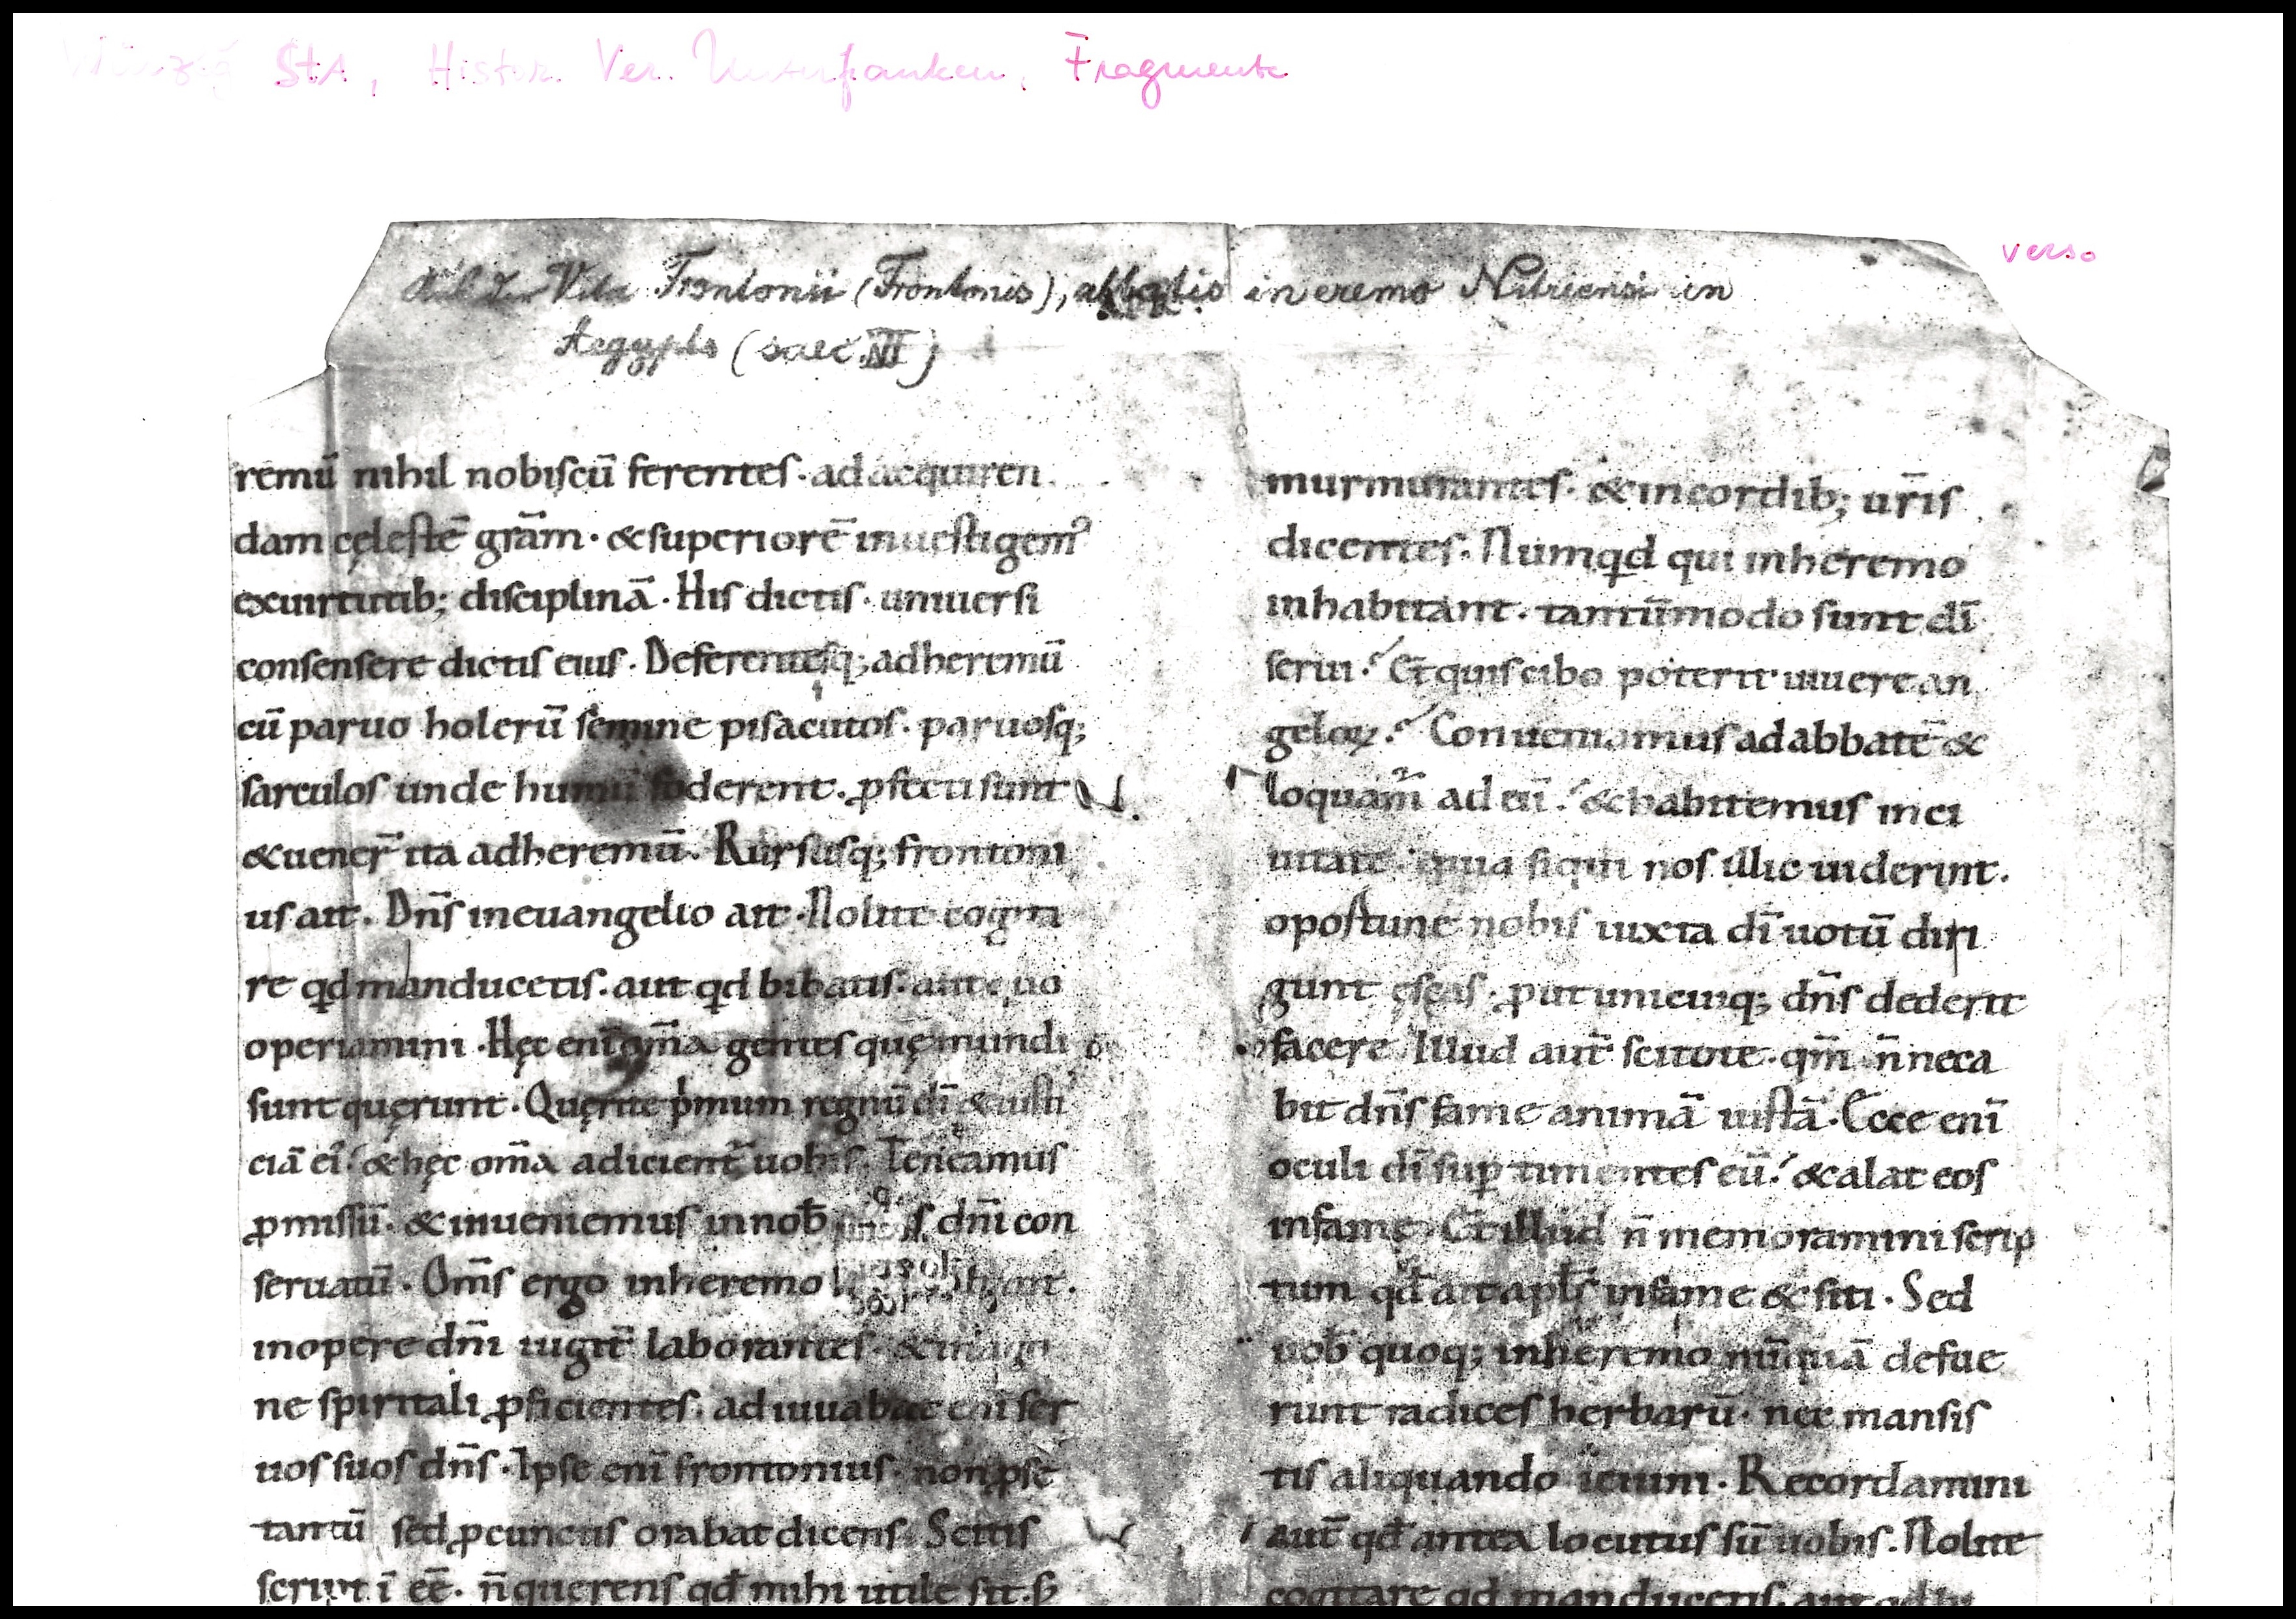 Würzbg StA, Histor. Ver. Unterfranken, Fragmente
verso
Aus der Vita Frontonii (Frontonis), abbatis in eremo Nitriensi in
Aegypto (saec. III)
remū nihil nobiſcū ferentes · ad acquiren
dam cęleſtē gr̄am · & superiorē inueſtigem᷒
ex uirtutib; diſciplinā · Hiſ dictiſ · uniuersi
consensere dictiſ eiuſ · Deferenteſq; ad heremū
cū paruo holerū semine piſacutoſ · paruoſq;
ſarculoſ unde humū foderent · ꝓfecti ſunt
& uener̄ ita ad heremū · Rurſuſq; frontoni
uſ ait · Dn̄ſ in euangelio ait · Nolite cogita
re qd manducetiſ · aut qd bibatiſ · aut quo
operiamini · Hęc enī om̄a gentes quę mundi
ſunt quęrunt · Quęrite pͥmum regnū dī & iuſti
ciā eī & hęc om̄a adicient᷑ uobiſ · Teneamuſ
ꝓmiſſū · & inueniemuſ in nob̄ dn̄i con
seruatū · Om̄ſ ergo in heremo
in opere dn̄i iugit᷑ laboranteſ ·
ne ſpiritali ꝓficienteſ · adiuuabat enī ſer
uoſ ſuoſ dn̄ſ · Ipſe enī frontoniuſ · non ꝓ ſe
tantū sed ꝓ cunctiſ orabat dicenſ · Scitiſ
script ī eē · n̄ querenſ qd̄ mihi utile ſit · ſꝫ
murmuranteſ · & in cordib; ur̄iſ
dicenteſ · Numqd qui in heremo
inhabitant · tantūmodo ſunt dī
ſerui · Et quiſ cibo poterit uiuere an
geloꝝ · Conueniamuſ ad abbatē &
loquam᷑ ad eū · & habitemuſ in ci
uitate · quia ſiqui noſ illic uiderint ·
opoſtune nobiſ iuxta dī uotū diri
gunt eſcaſ · ꝓut unicuiq; dn̄ſ dederit
facere Illud aut᷑ ſcitote · qm̄ n̄ neca
bit dn̄ſ fame animā iuſtā · Ecce enī
oculi dī ſup timenteſ eū · & alat eoſ
in fame Et illud n̄ memoramini ſcrip
tum qd̄ ait apl̄ſ in fame & ſiti · Sed
uob̄ quoq; in heremo nūquā defue
runt radiceſ herbarū · nec manſiſ
tiſ aliquando ieiuni · Recordamini
aut᷑ qd̄ antea locutuſ ſū uobiſ · Nolite
cogitare qd manducetiſ · aut qd bi